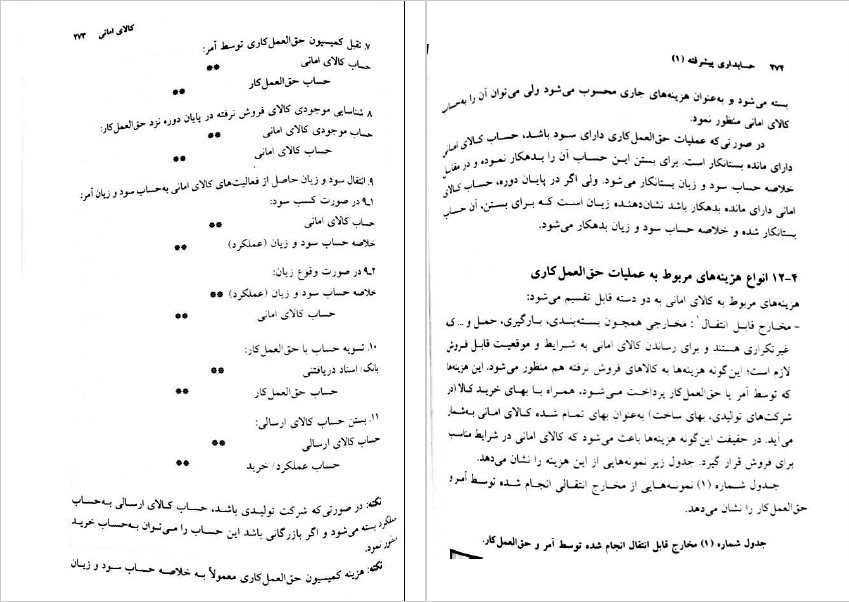 کالای امانی ۲۷۳
۷. تقبل کمیسیون حق‌العمل‌کاری توسط آمر:
حساب کالای امانی **
حساب حق‌العمل‌کار **
۸. شناسایی موجودی کالای فروش نرفته در پایان دوره نزد حق‌العمل‌کار:
حساب موجودی کالای امانی **
حساب کالای امانی **
۹. انتقال سود و زیان حاصل از فعالیت‌های کالای امانی به‌حساب سود و زیان آمر:
۹ـ۱ در صورت کسب سود:
حساب کالای امانی **
خلاصه حساب سود و زیان (عملکرد) **
۹ـ۲ در صورت وقوع زیان:
خلاصه حساب سود و زیان (عملکرد) **
حساب کالای امانی **
۱۰. تسویه حساب با حق‌العمل‌کار:
بانک/ اسناد دریافتنی **
حساب حق‌العمل‌کار **
۱۱. بستن حساب کالای ارسالی:
حساب کالای ارسالی **
حساب عملکرد/ خرید **
نکته: در صورتی‌که شرکت تولیدی باشد، حساب کالای ارسالی به‌حساب
عملکرد بسته می‌شود و اگر بازرگانی باشد این حساب را می‌توان به‌حساب خرید
منظور نمود.
نکته: هزینه کمیسیون حق‌العمل‌کاری معمولاً به خلاصه حساب سود و زیان
۲۷۴ حسابداری پیشرفته (۱)
بسته می‌شود و به‌عنوان هزینه‌های جاری محسوب می‌شود ولی می‌توان آن را به‌حساب
کالای امانی منظور نمود.
در صورتی‌که عملیات حق‌العمل‌کاری دارای سود باشد، حساب کالای امانی
دارای مانده بستانکار است. برای بستن این حساب آن را بدهکار نموده و در مقابل
خلاصه حساب سود و زیان بستانکار می‌شود. ولی اگر در پایان دوره، حساب کالای
امانی دارای مانده بدهکار باشد نشان‌دهنده زیان است که برای بستن، آن حساب
بستانکار شده و خلاصه حساب سود و زیان بدهکار می‌شود.
۱۲-۴ انواع هزینه‌های مربوط به عملیات حق‌العمل‌کاری
هزینه‌های مربوط به کالای امانی به دو دسته قابل تقسیم می‌شود:
- مخارج قابل انتقال۱: مخارجی همچون بسته‌بندی، بارگیری، حمل و ... که
غیرتکراری هستند و برای رساندن کالای امانی به شرایط و موقعیت قابل فروش
لازم است؛ این‌گونه هزینه‌ها به کالاهای فروش نرفته هم منظور می‌شود. این هزینه‌ها
که توسط آمر یا حق‌العمل‌کار پرداخت می‌شود، همراه با بهای خرید کالا (در
شرکت‌های تولیدی، بهای ساخت) به‌عنوان بهای تمام شده کالای امانی به‌شمار
می‌آید. در حقیقت این‌گونه هزینه‌ها باعث می‌شود که کالای امانی در شرایط مناسب
برای فروش قرار گیرد. جدول زیر نمونه‌هایی از این هزینه را نشان می‌دهد.
جدول شماره (۱) نمونه‌هایی از مخارج انتقالی انجام شده توسط آمر و
حق‌العمل‌کار را نشان می‌دهد.
جدول شماره (۱) مخارج قابل انتقال انجام شده توسط آمر و حق‌العمل‌کار.